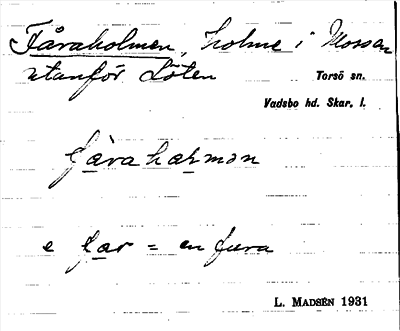 Fåraholmen, holme i Mossen
utanför Löten
Torsö sn.
Vadsbo hd. Skar. l.
fàraharmən
e far = en fura
L. MADSÉN 1931